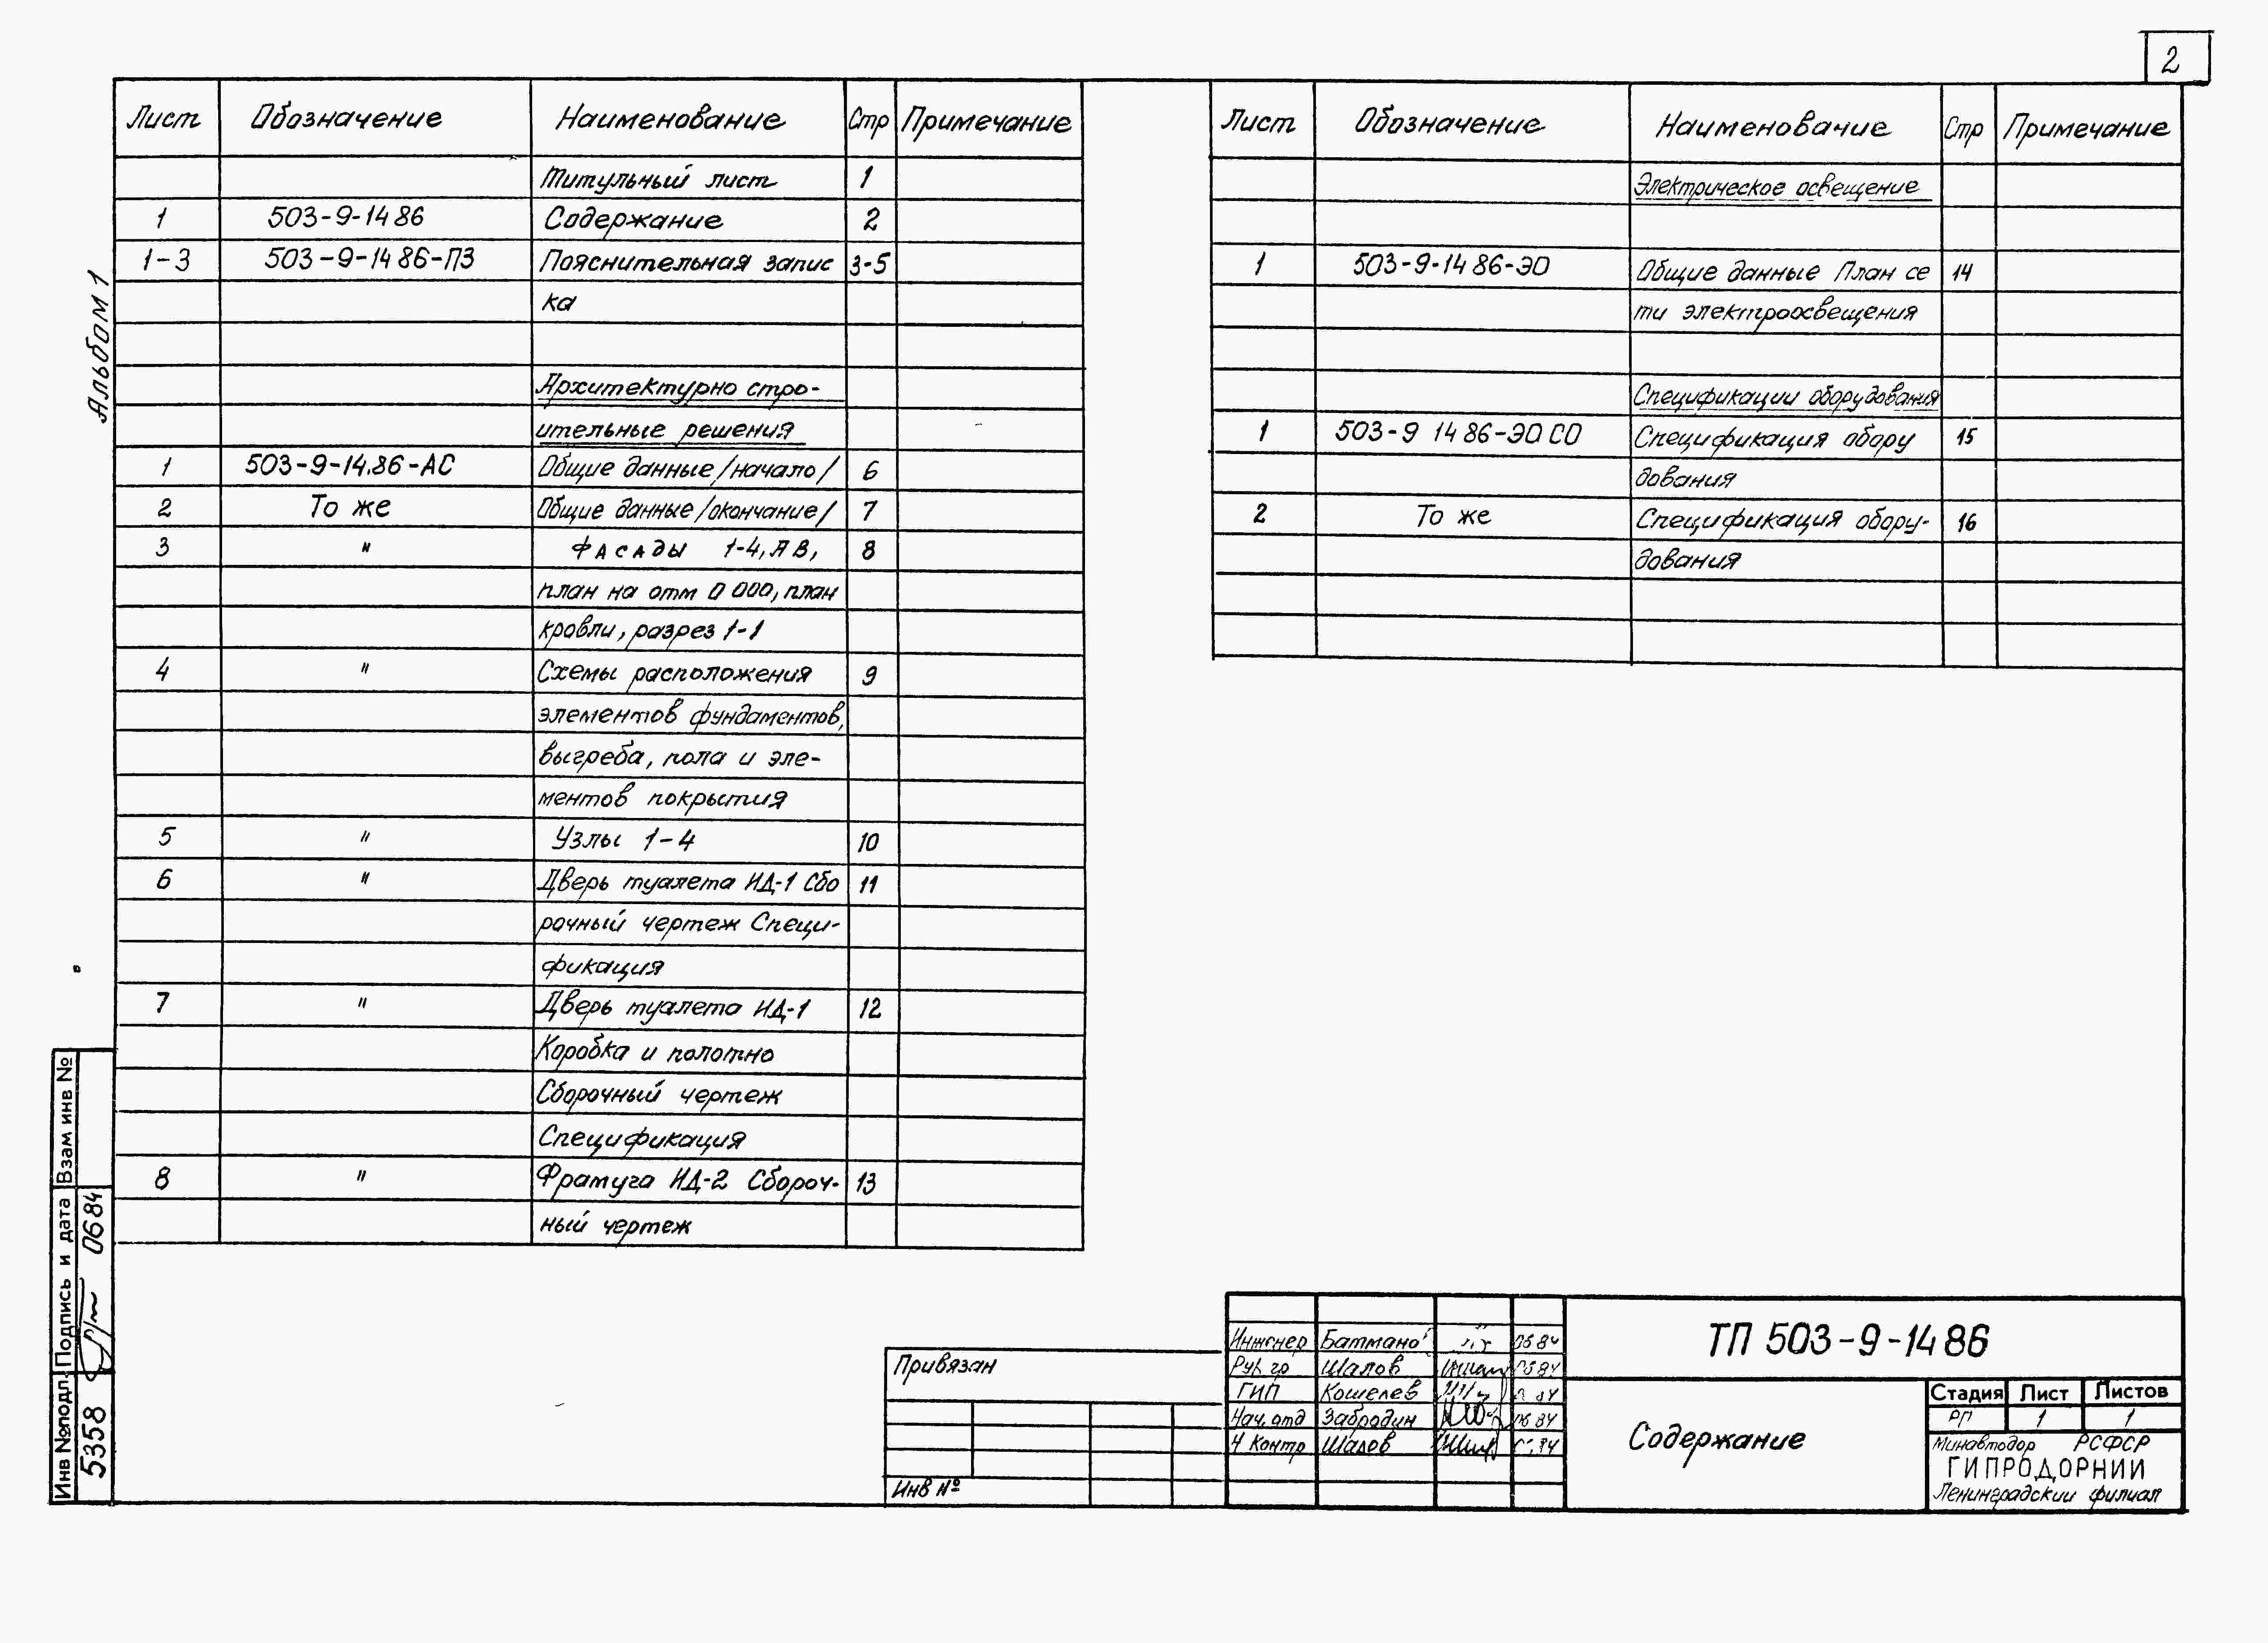 2
Альбом 1
Лист Обозначение Наименование Стр Примечание
Титульный лист 1
1 503-9-14 86 Содержание 2
1-3 503-9-14 86-ПЗ Пояснительная запис 3-5
ка
Архитектурно стро-
ительные решения
1 503-9-14.86-АС Общие данные /начало/ 6
2 То же Общие данные /окончание/ 7
3 " Фасады 1-4, А В, 8
план на отм 0 000, план
кровли, разрез 1-1
4 " Схемы расположения 9
элементов фундаментов,
выгреба, пола и эле-
ментов покрытия
5 " Узлы 1-4 10
6 " Дверь туалета ИД-1 Сбо 11
рочный чертеж Специ-
фикация
7 " Дверь туалета ИД-1 12
Коробка и полотно
Сборочный чертеж
Спецификация
8 " Фрамуга ИД-2 Сбороч- 13
ный чертеж
Лист Обозначение Наименование Стр Примечание
Электрическое освещение
1 503-9-14 86-ЭО Общие данные План се 14
ти электроосвещения
Спецификации оборудования
1 503-9 14 86-ЭО СО Спецификация обору 15
дования
2 То же Спецификация обору- 16
дования
Взам инв №
Подпись и дата 0684
Инв № подл. 5358
Привязан
Инв №
Инженер 06 84
Рук гр Шалов
ГИП Кошелев
Нач. отд Забродин 06 84
Ч Контр Шалов
ТП 503-9-14 86
Содержание
Стадия Лист Листов
РП 1 1
Минавтодор РСФСР
ГИПРОДОРНИИ
Ленинградский филиал